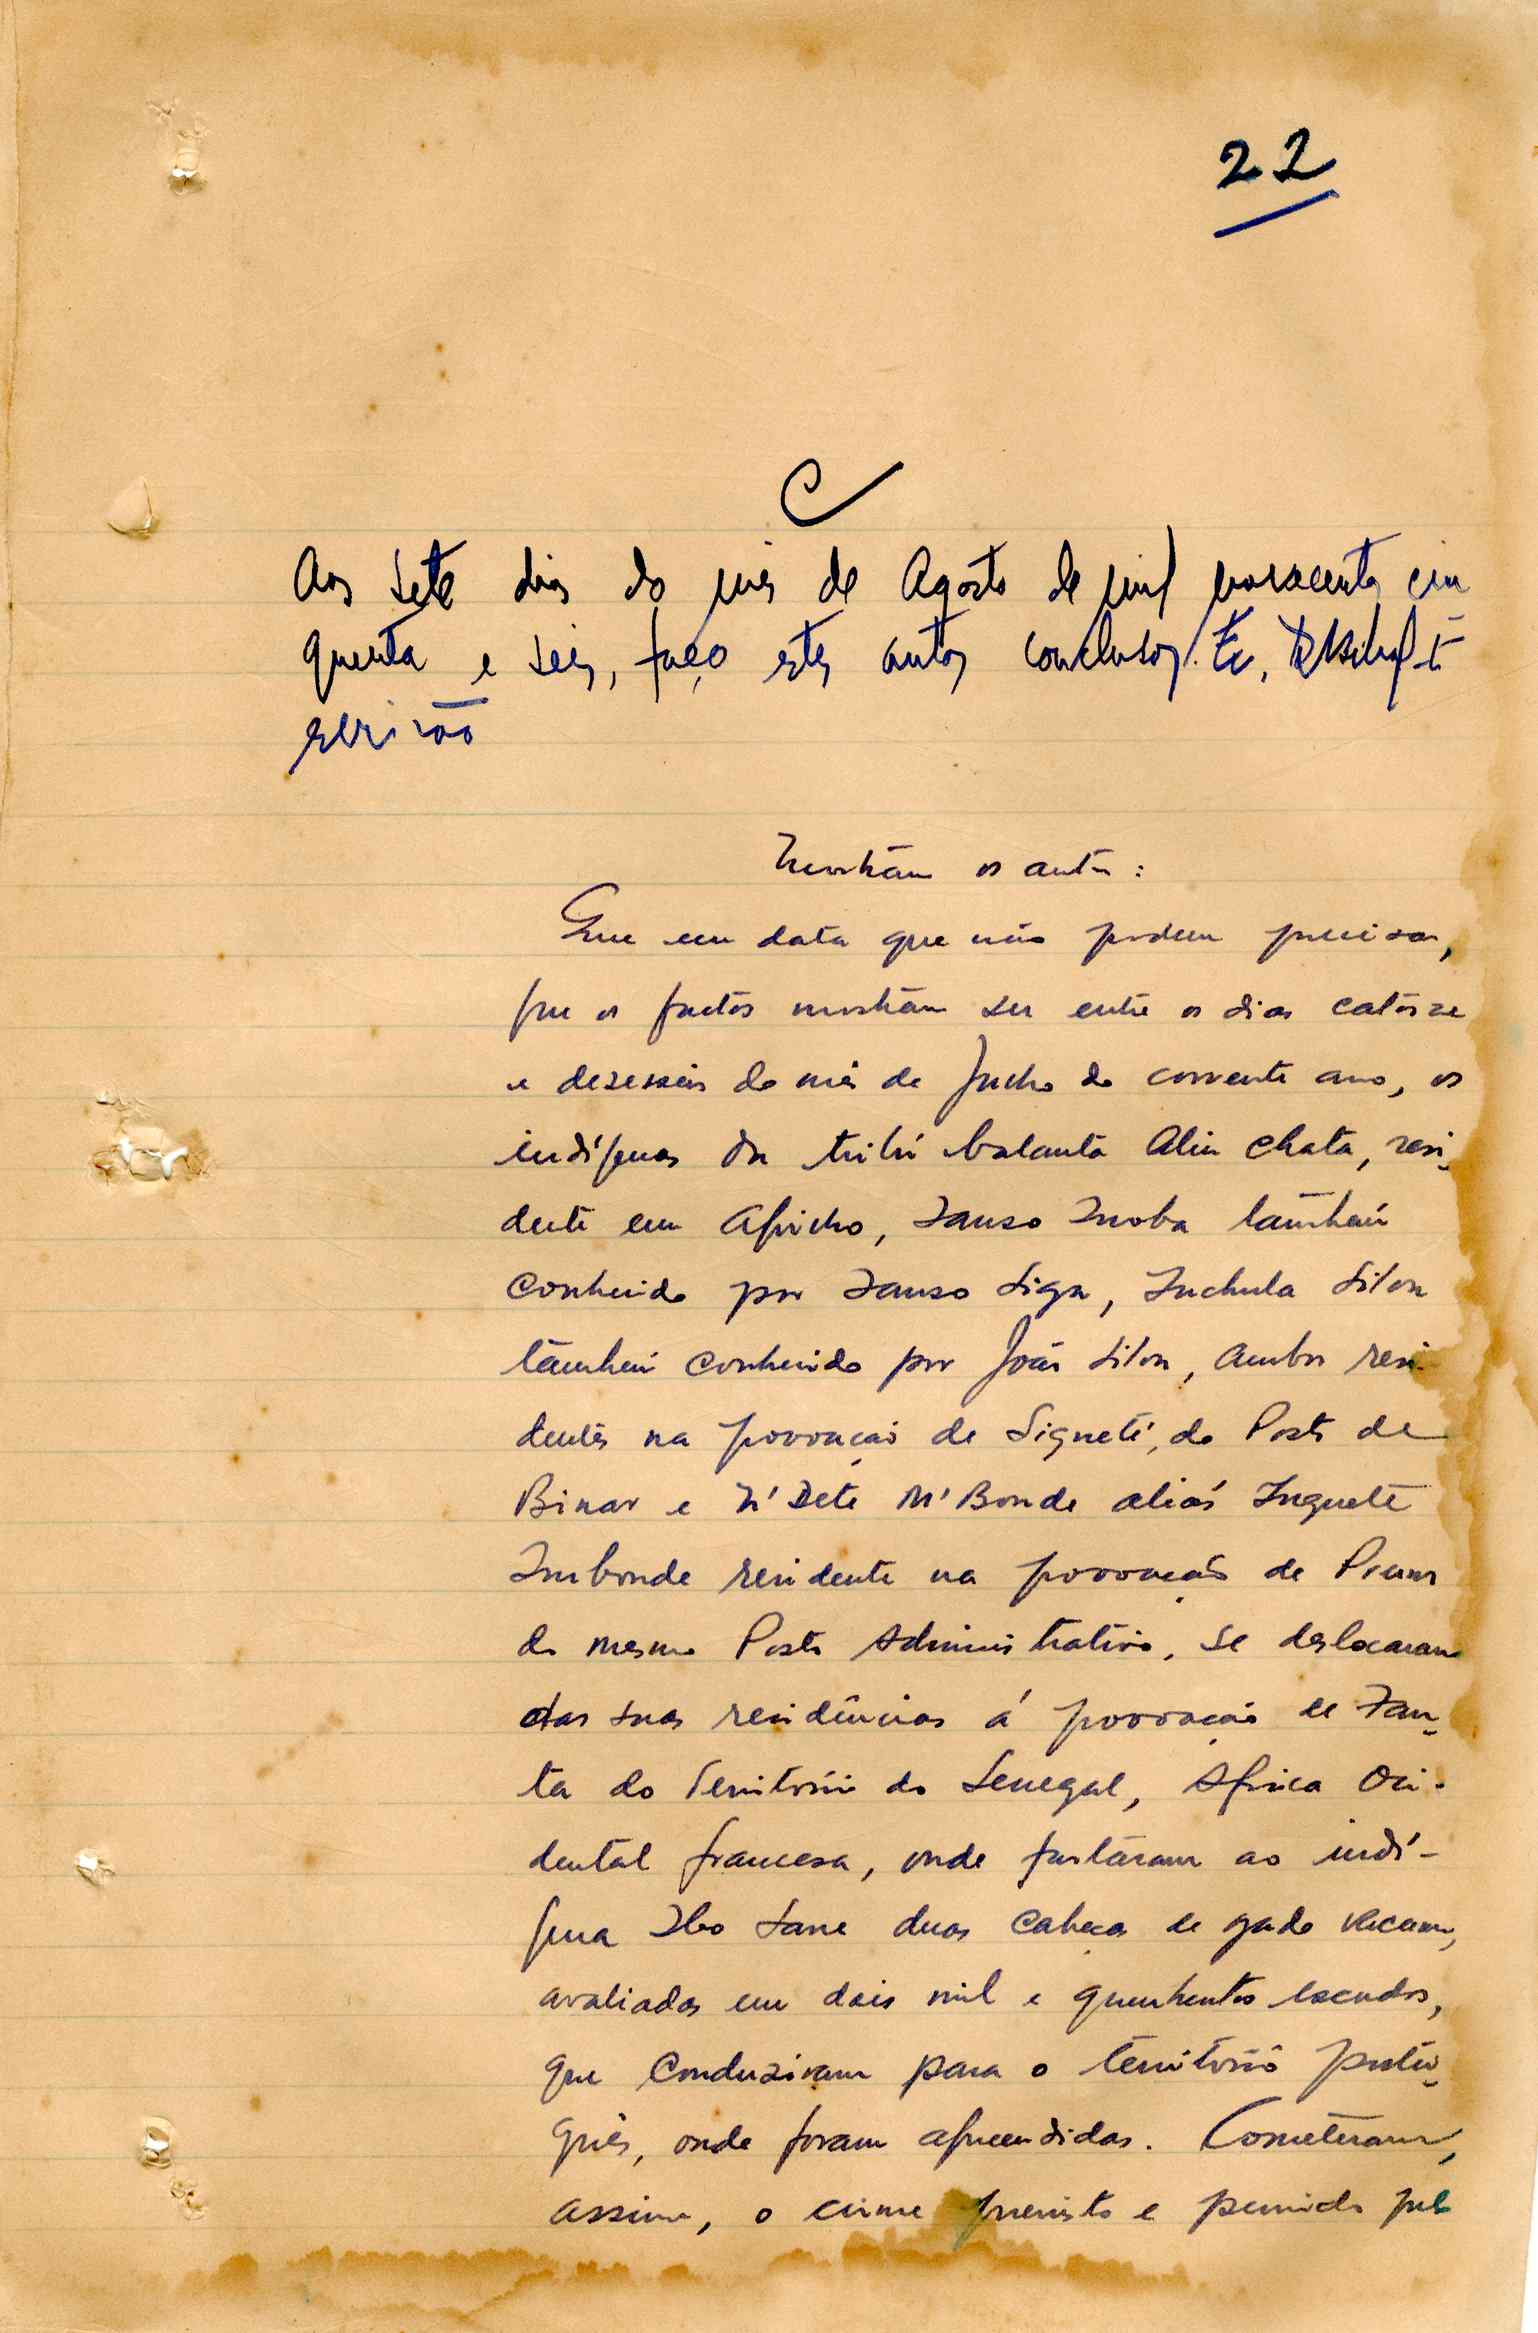 22
C
Aos sete dias do mês de Agosto de mil novecentos cin
quenta e seis, faço estes autos conclusos. Eu,
escrivão
Mostram os autos:
Que em data que não podem precisar,
que os factos mostram ser entre os dias catorze
e dezesseis do mês de Junho do corrente ano, os
indígenas da tribu balanta Aliu Chata, resi-
dente em Apicho, Tanso Inoba também
conhecido por Tanso Siga, Inchula Silva
também conhecido por João Silva, ambos resi-
dentes na povoação de Signeté, do Posto de
Binar e N'Dete M'Bonde aliás Inguete
Imbonde residente na povoação de
do mesmo Posto Administrativo, se deslocaram
das suas residências á povoação de Tan-
ta do Território do Senegal, Africa Oci-
dental francesa, onde furtáram ao indí-
gena Ibo Sane duas cabeças de gado vacum,
avaliadas em dois mil e quinhentos escudos,
que conduziram para o território portu-
guês, onde foram apreendidas. Cometeram,
assim, o crime previsto e punido pelo